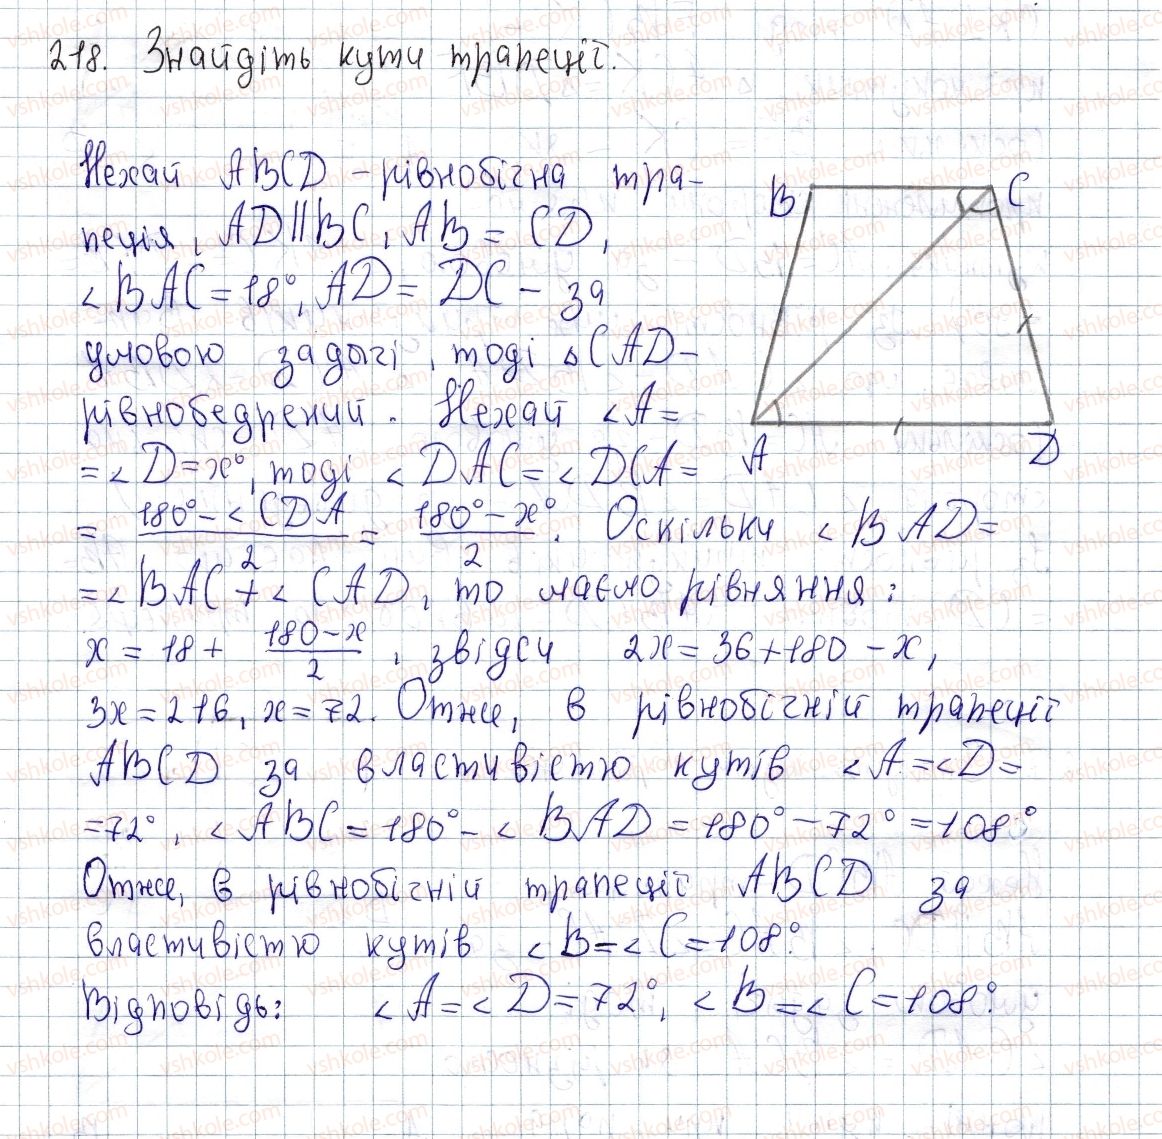 218. Знайдіть кути трапеції.
Нехай ABCD - рівнобічна тра-
пеція, AD||BC, AB = CD,
∠BAC = 18°, AD = DC - за
умовою задачі, тоді ▵CAD -
рівнобедрений. Нехай ∠A =
= ∠D = x°, тоді ∠DAC = ∠DCA =
= (180° - ∠CDA)/2 = (180° - x°)/2. Оскільки ∠BAD =
= ∠BAC + ∠CAD, то маємо рівняння:
x = 18 + (180 - x)/2, звідси 2x = 36 + 180 - x,
3x = 216, x = 72. Отже, в рівнобічній трапеції
ABCD за властивістю кутів ∠A = ∠D =
= 72°, ∠ABC = 180° - ∠BAD = 180° - 72° = 108°
Отже, в рівнобічній трапеції ABCD за
властивістю кутів ∠B = ∠C = 108°.
Відповідь: ∠A = ∠D = 72°, ∠B = ∠C = 108°.
B
C
A
D
vshkole.com